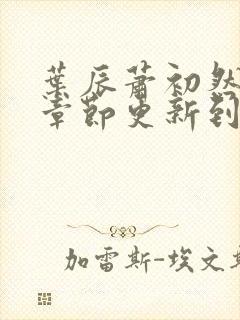 葉辰蕭初然
章節更新到
加雷斯-埃文斯